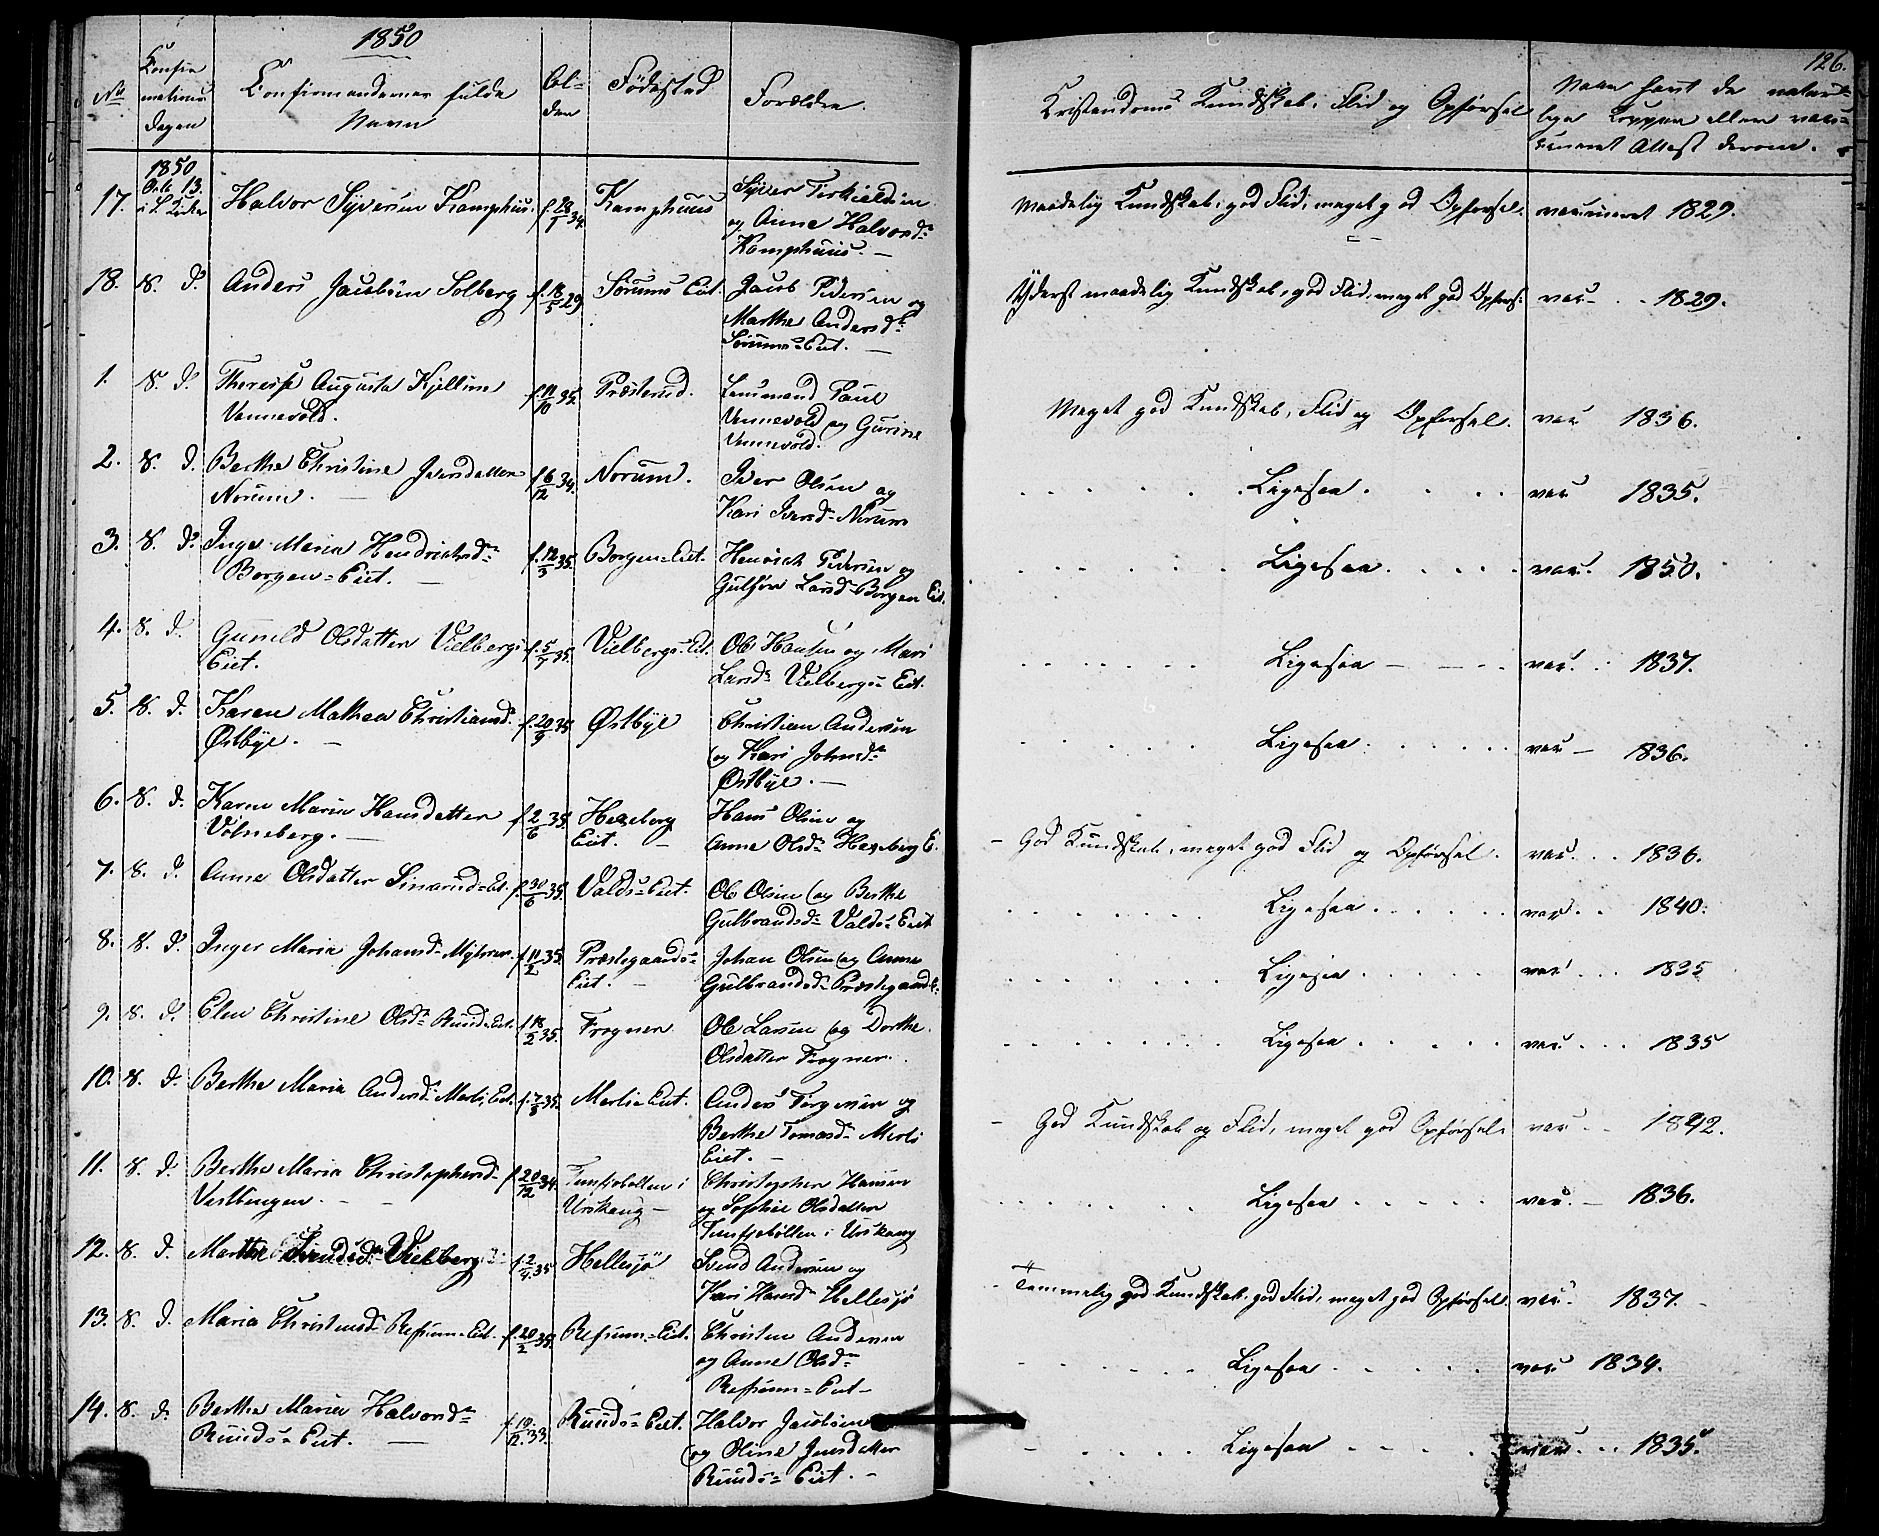 1850
126.
No
Confir
mations
dagen
Confirmandernes fulde
Navn
Al-
der
Fødested
Forældre.
Kristendoms Kundskab, Flid og Opførsel
Naar havt de natur-
lige Kopper eller vac-
cineret Attest derom.
1850
Octb. 13.
17. Halvor Syversen Kamphus. f. 28/1 34. Kamphuus
Syver Terkieldsen
og Anne Halvorsd.
Kamphuus. —
Maadelig Kundskab, god Flid, meget god Opførsel. vaccineret 1829.
18. S. D. Anders Jacobsen Solberg f. 18/5 29 Sørums Eiet.
Jacob Pedersen og
Marthe Andersd.
Sørums-Eiet. —
Yderst maadelig Kundskab, god Flid, meget god Opførs. vac - . . 1829.
1. S. D. Therese Augusta Kjelline
Vennevold.
f. 11/10 35. Præsterud.
Lensmand Paul
Vennevold og Gurine
Vennevold.
Meget god Kundskab, Flid og Opførsel. vac 1836.
2. S. D. Berthe Christine Iversdatter
Norum. —
f. 6/12 34. Norum.
Iver Olsen og
Kari Iversd. Norum
Ligesaa. vac 1835.
3. S. D. Inger Maria Hendrichsd.
Borgen-Eiet. —
f. 12/3 35. Borgen-Eiet.
Henrich Pedersen og
Gulfør Larsd. Borgen Eit.
Ligesaa. vac. 1850.
4. S. D. Gunild Olsdatter Vielbergs
Eiet.
f. 5/7 35. Vielbergs-Eit.
Ole Hansen og Mari
Larsd. Vielbergs-Eit.
Ligesaa vac. 1837.
5. S. D. Karen Mathea Christiansd.
Østbye. —
f. 20/9 35 Østbye
Christian Andersen
og Kari Johnsd.
Østbye. —
Ligesaa. vac - 1836.
6. S. D. Karen Marie Hansdatter
Volneberg. —
f. 2/6 35. Hexeberg
Eiet. —
Hans Olsen og
Anne Olsd. Hexeberg E.
- God Kundskab, meget god Flid og Opførsel. vac. . . 1836.
7. S. D. Anne Olsdatter Sinarud-Et. f. 30/6 35. Valds-Eiet.
Ole Olsen og Berthe
Gulbrandsd. Valds-Eiet
Ligesaa. vac. . . 1840.
8. S. D. Inger Maria Johansd. f. 11/2 35. Præstegaards-
Eiet. —
Johan Olsen og Anne
Gulbrandsd. Præstegaards-
Ligesaa vac. 1835
9. S. D. Elen Christine Olsd. Ruud-Eit. f. 18/2 35. Frogner
Ole Larsen og Dorthe
Olsdatter Frogner.
Ligesaa vac. . . . 1835
10. S. D. Berthe Maria Andersd. Merli Eit. f. 7/8 35. Merli-Eiet.
Anders Torgersen og
Berthe Tomasd. Merli
Eiet. —
- God Kundskab og Flid, meget god Opførsel. vac . . 1842.
11. S. D. Berthe Maria Christophersd.
Vestbengen. —
f. 20/12 34. i
Urskoug —
Christopher Hansen
og Sophie Olsdatter
i Urskoug
Ligesaa vac. — 1836.
12. S. D. Marthe Svendsd. Vielberg f. 2/4 35 Hellesjø
Svend Andersen og
Kari Hansd. Hellesjø
- Temmelig god Kundskab, god Flid, meget god Opførsel. vac. 1837.
13. S. D. Maria Christensd. Refsum-Eit. f. 20/2 35. Refsum-Eit.
Christen Andersen
og Anne Olsd.
Refsum-Eit -
Ligesaa vac 1834.
14. S. D. Berthe Maria Halvorsd.
Ruuds-Eiet. —
f. 19/12 33. Ruuds-Eiet.
Halvor Jacobsen
og Oline Jensdatter
Ruuds-Eiet. -
Ligesaa vac. . . 1835.